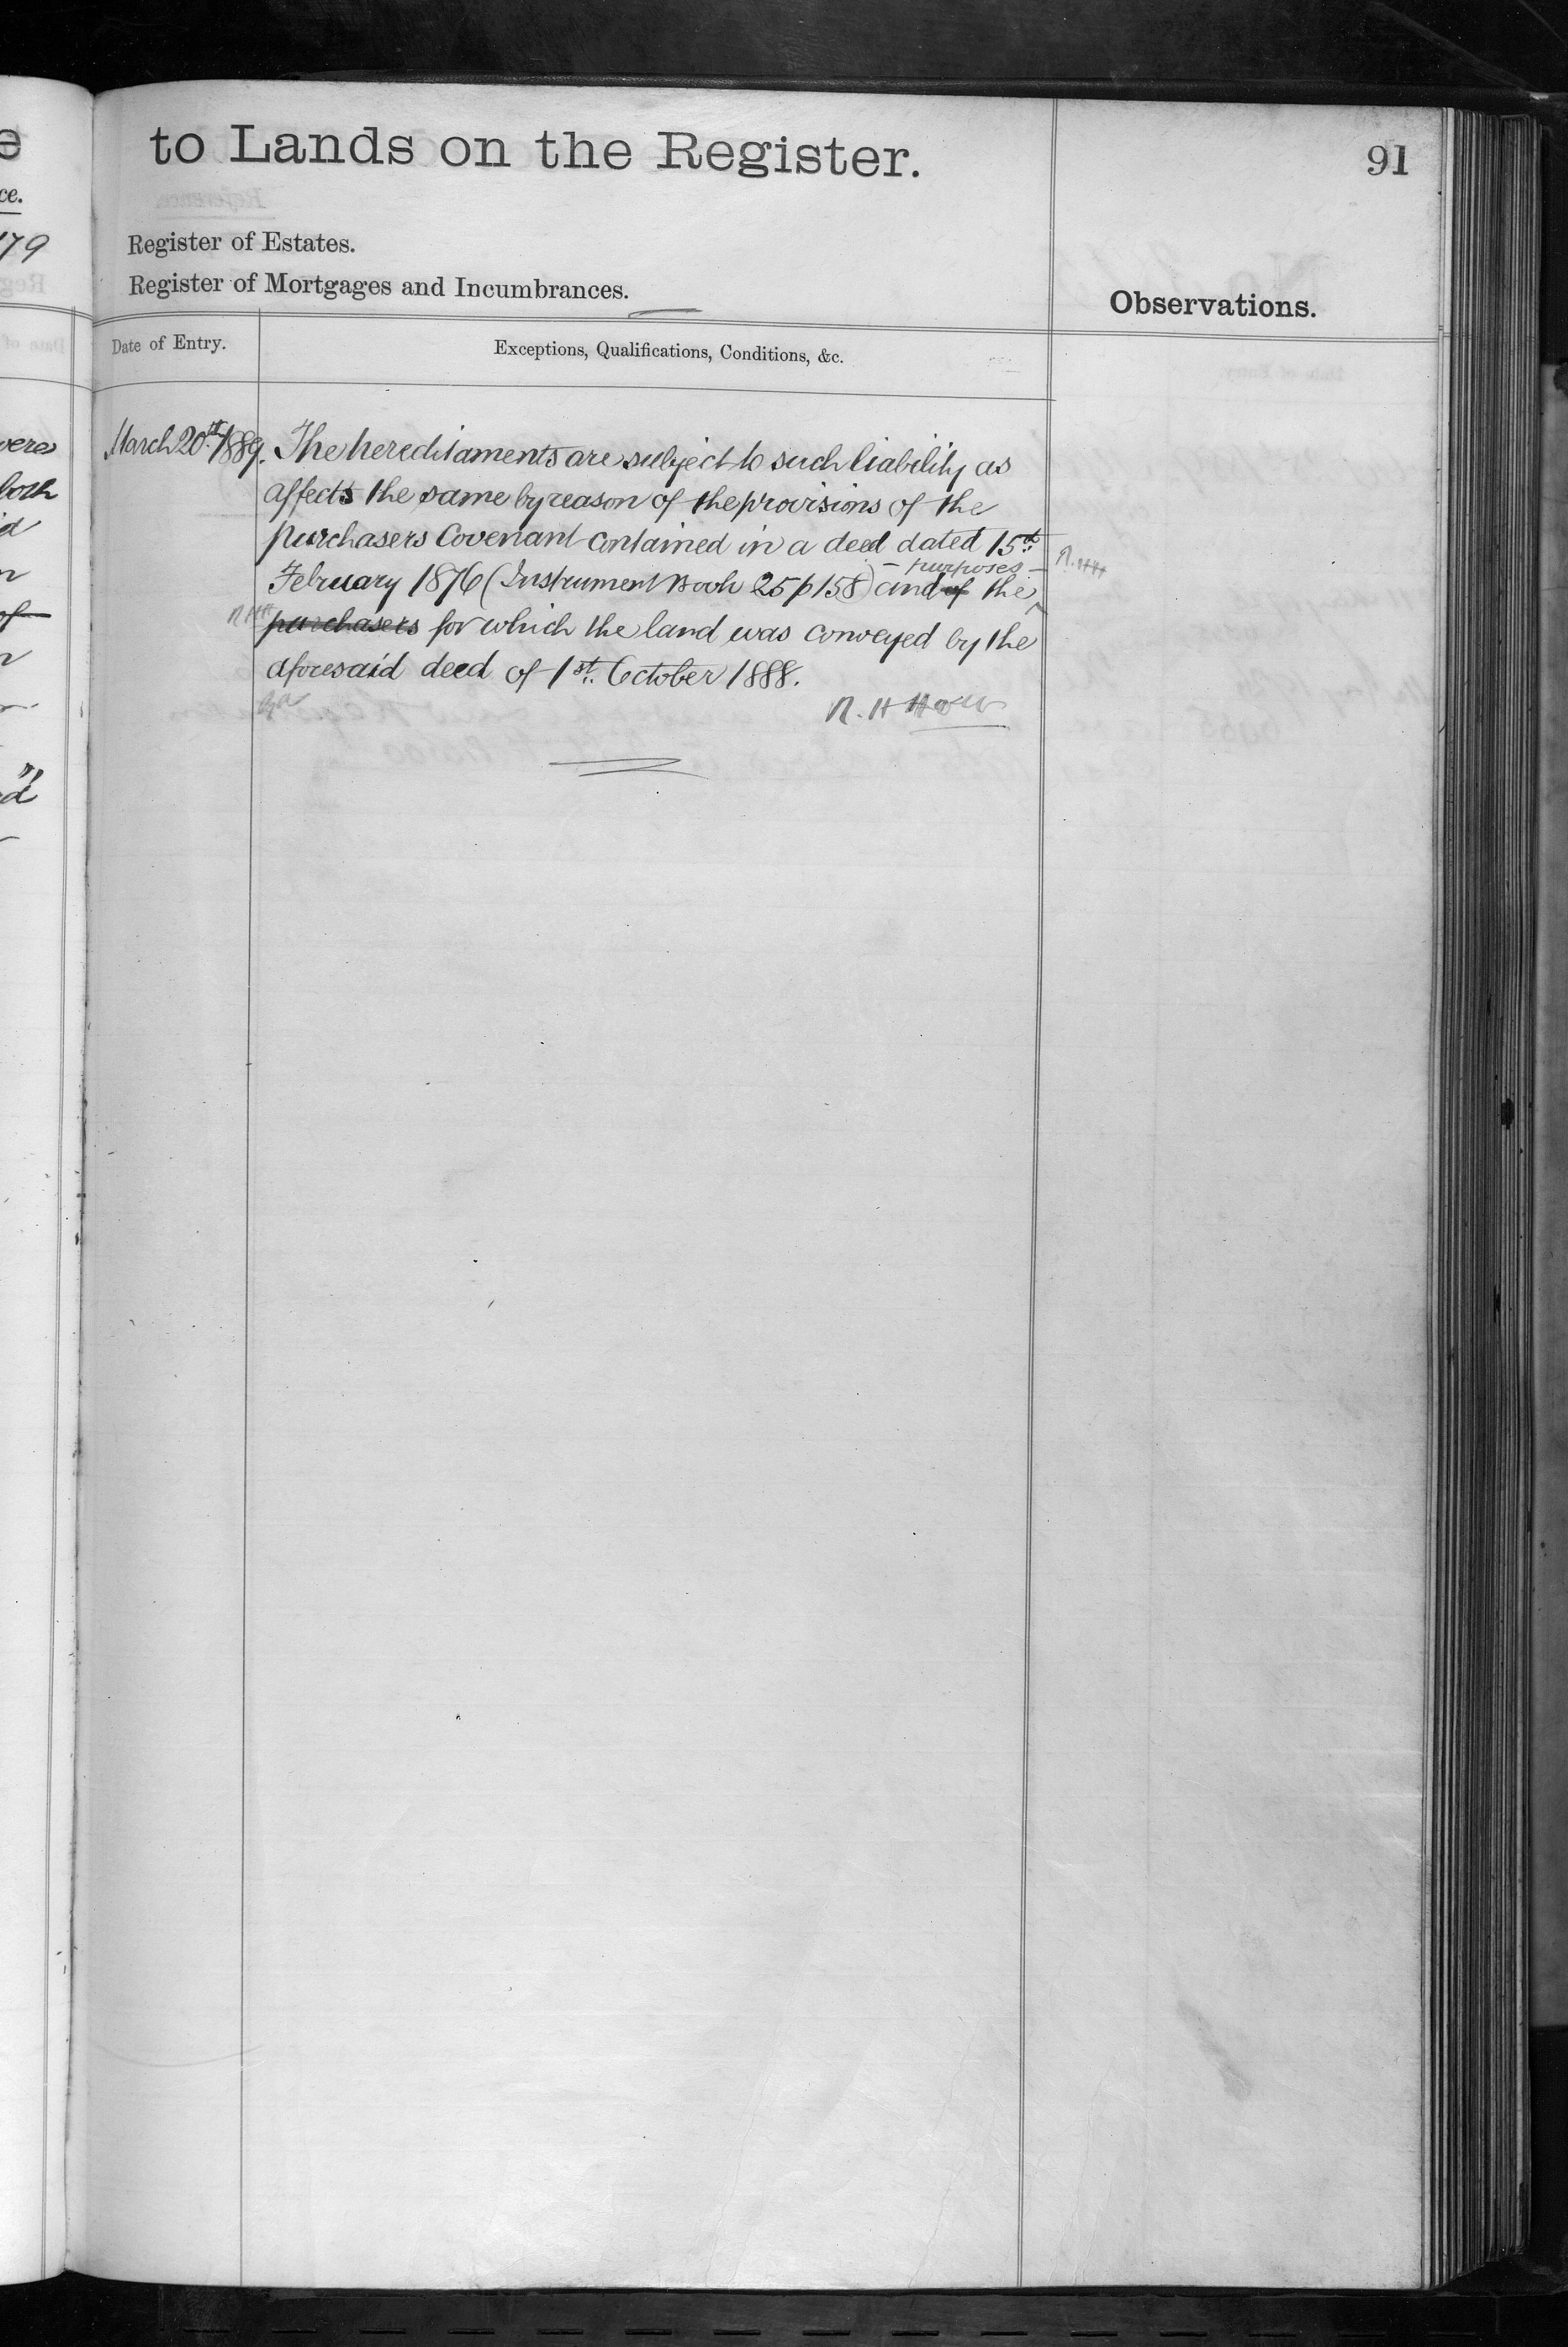 to Lands on the Register.
91
Register of Estates.
Register of Mortgages and Incumbrances.
Observations.
Date of Entry.
Exceptions, Qualifications, Conditions, &c.
March 20th 1889. The hereditaments are subject to such liability as
affects the same by reason of the provisions of the
purchasers Covenant contained in a deed dated 15th
purposes
February 1876 (Instrument Book 25 p 158) and of the
purchasers for which the land was conveyed by the
aforesaid deed of 1st October 1888.